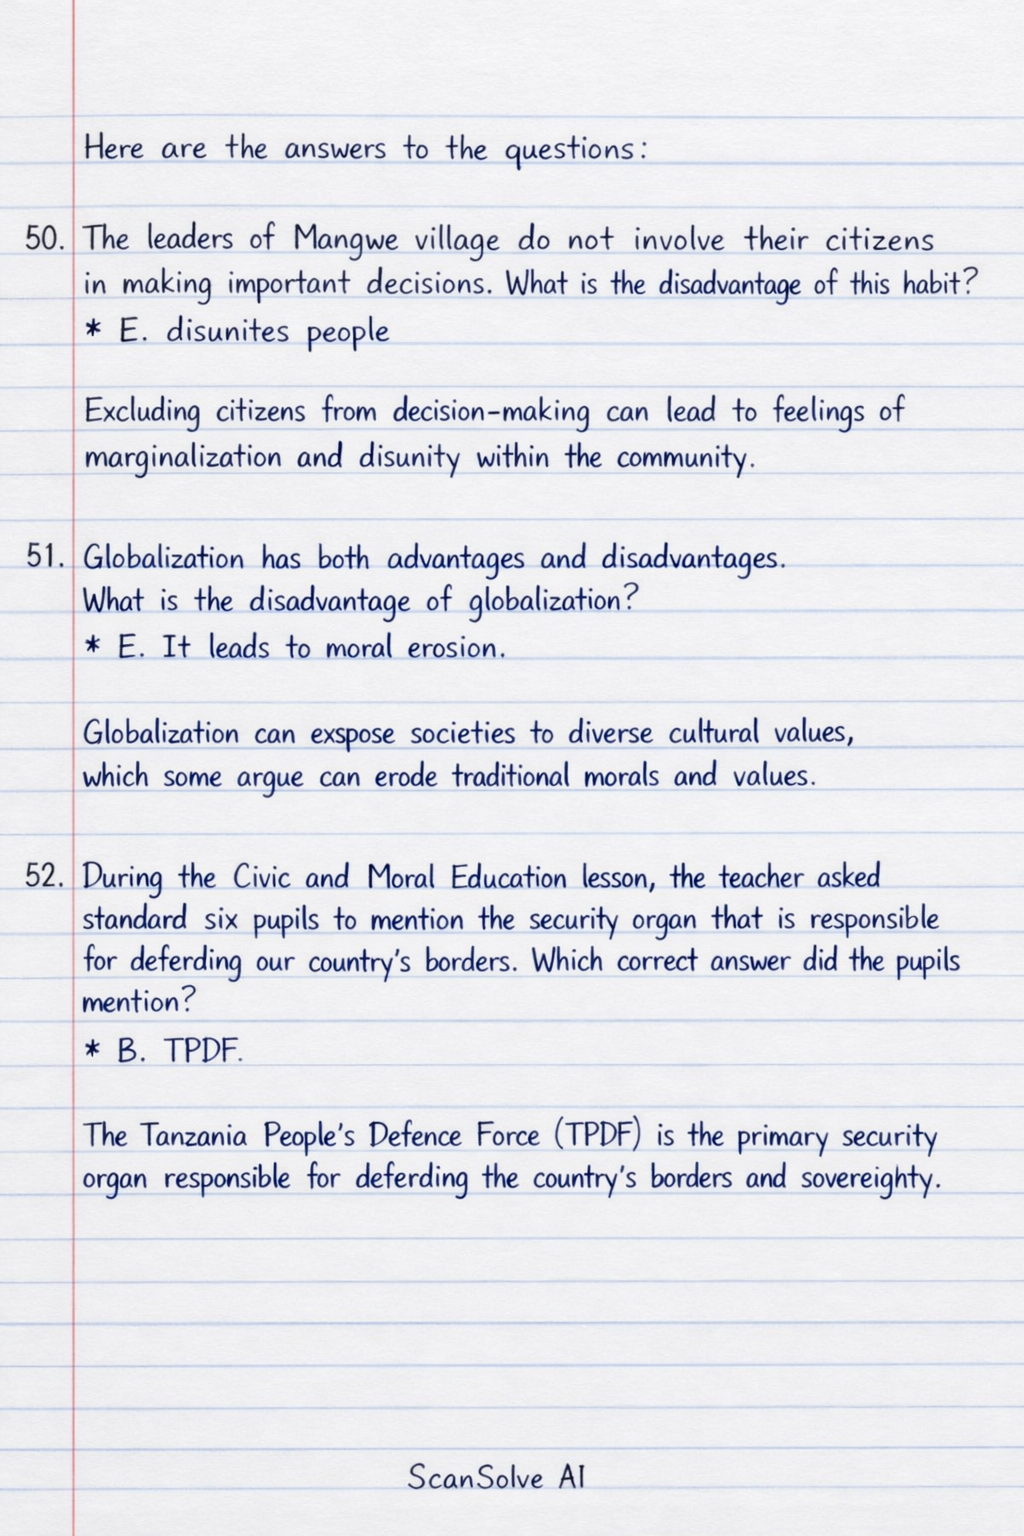 Here are the answers to the questions:
50. The leaders of Mangwe village do not involve their citizens
in making important decisions. What is the disadvantage of this habit?
* E. disunites people
Excluding citizens from decision-making can lead to feelings of
marginalization and disunity within the community.
51. Globalization has both advantages and disadvantages.
What is the disadvantage of globalization?
* E. It leads to moral erosion.
Globalization can exspose societies to diverse cultural values,
which some argue can erode traditional morals and values.
52. During the Civic and Moral Education lesson, the teacher asked
standard six pupils to mention the security organ that is responsible
for deferding our country's borders. Which correct answer did the pupils
mention?
* B. TPDF.
The Tanzania People's Defence Force (TPDF) is the primary security
organ responsible for deferding the country's borders and sovereighty.
ScanSolve AI